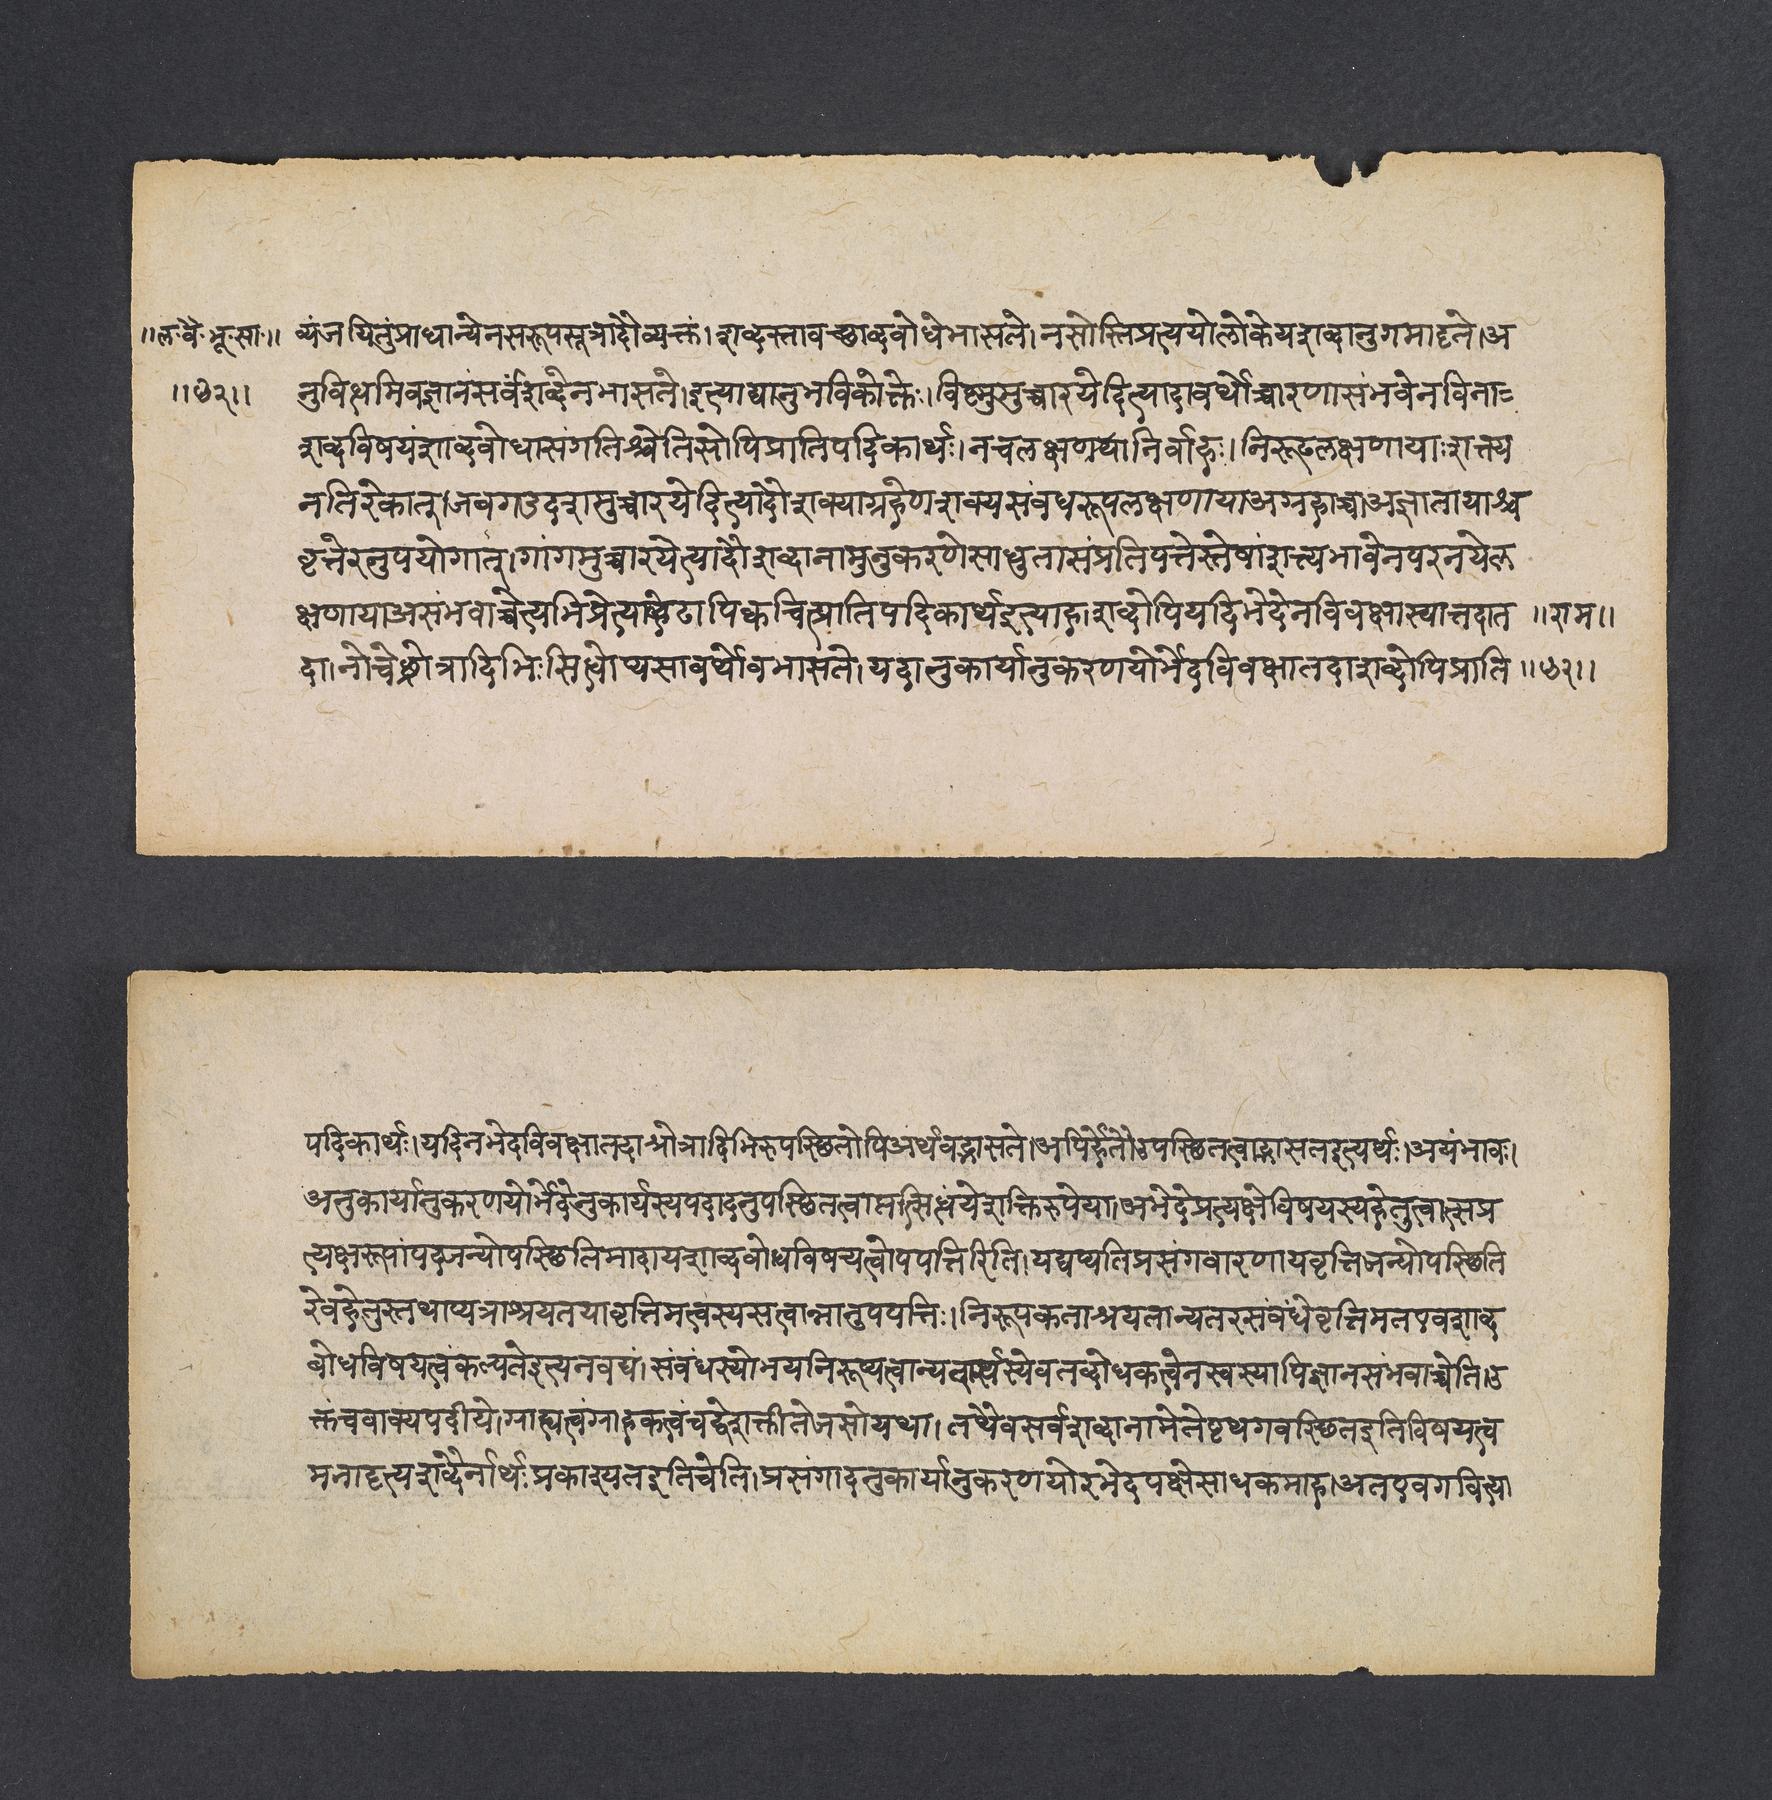 ॥ल॰वै॰भू॰सा॰॥ व्यंजयितुंप्राधान्येनसरूपसूत्रादौव्यक्तं।शब्दस्तावच्छाब्दबोधेभासते।नसोस्तिप्रत्ययोलोकेयशब्दानुगमादृते।अ
॥७२॥ नुविध्धमिवज्ञानंसर्वंशब्देनभासते।इत्याद्यानुभविकोक्तेः।विष्णुमुच्चारयेदित्यादावर्थोच्चारणासंभवेनविना
शब्दविषयंशाब्दबोधासंगतिश्चेतिसोपिप्रातिपदिकार्थः।नचलक्षणयानिर्वाहः।निरूढलक्षणायाःशक्त्य
नतिरेकात्।जबगडदशमुच्चारयेदित्यादौशक्याग्रहेणशक्यसंबंधरूपलक्षणायाअग्रहाच्च।अज्ञातायाश्च
वृत्तेरनुपयोगात्।गांगमुच्चारयेत्यादौशब्दानामुनुकरणेसाधुतासंप्रतिपत्तेस्तेषांशक्त्यभावेनपरनयेल
क्षणायाअसंभवाच्चेत्यभिप्रेत्यषोढापिक्वचित्प्रातिपदिकार्थइत्याह।शब्दोपियदिभेदेनविवक्षास्यात्तदात ॥राम॥
दा।नोचेछ्रोत्रादिभिःसिध्धोप्यसावर्थोवभासते।यदानुकार्यानुकरणयोर्भेदविवक्षातदाशब्दोपिप्राति ॥७२॥
पदिकार्थः।यदिनभेदविवक्षातदाश्रोत्रादिभिरुपस्छितोपिअर्थवद्भासते।अपिर्हेतौउपस्छितत्वाद्भासतइत्यर्थः।अयंभावः।
अनुकार्यानुकरणयोर्भेदेनुकार्यस्यपदादनुपस्छितत्वात्तत्सिध्धयेशक्तिरुपेया।अभेदेप्रत्यक्षेविषयस्यहेतुत्वात्सप्र
त्यक्षरूपांपदजन्योपस्छितिमादायशाब्दबोधविषयत्वोपपत्तिरिति।यद्यप्यतिप्रसंगवारणायवृत्तिजन्योपस्छिति
रेवहेतुस्तथाप्यत्राश्रयतयावृत्तिमत्त्वस्यसत्त्वान्नानुपपत्तिः।निरूपकताश्रयतान्यतरसंबंधेवृत्तिमतएवशाब्द
बोधविषयत्वंकल्प्यतेइत्यनवद्यं।संबंधस्योभयनिरूप्यत्वान्यत्वार्थस्येवतद्बोधकत्वेनस्वस्यापिज्ञानसंभवाच्चेति।उ
क्तंचवाक्यपदीये।ग्राह्यत्वंग्राहकत्वंचद्वेशक्तीतेजसोयथा।तथैवसर्वशब्दानामेतेपृथगवस्छितइतिविषयत्व
मनादृत्यशब्दैर्नार्थःप्रकाश्यतइतिचेति।प्रसंगादनुकार्यानुकरणयोरभेदपक्षेसाधकमाह।अतएवगवित्या